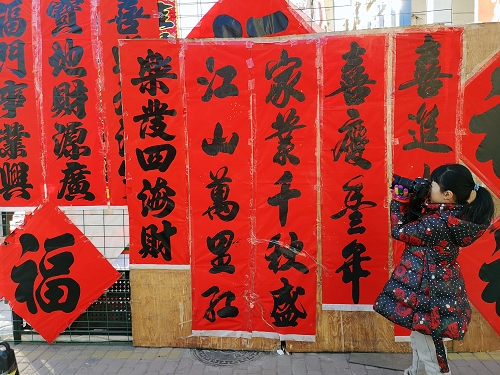 喜進
喜慶金年
家業千秋盛
江山萬里紅
樂發四海財
喜
寶地財源廣
福門事業興
福